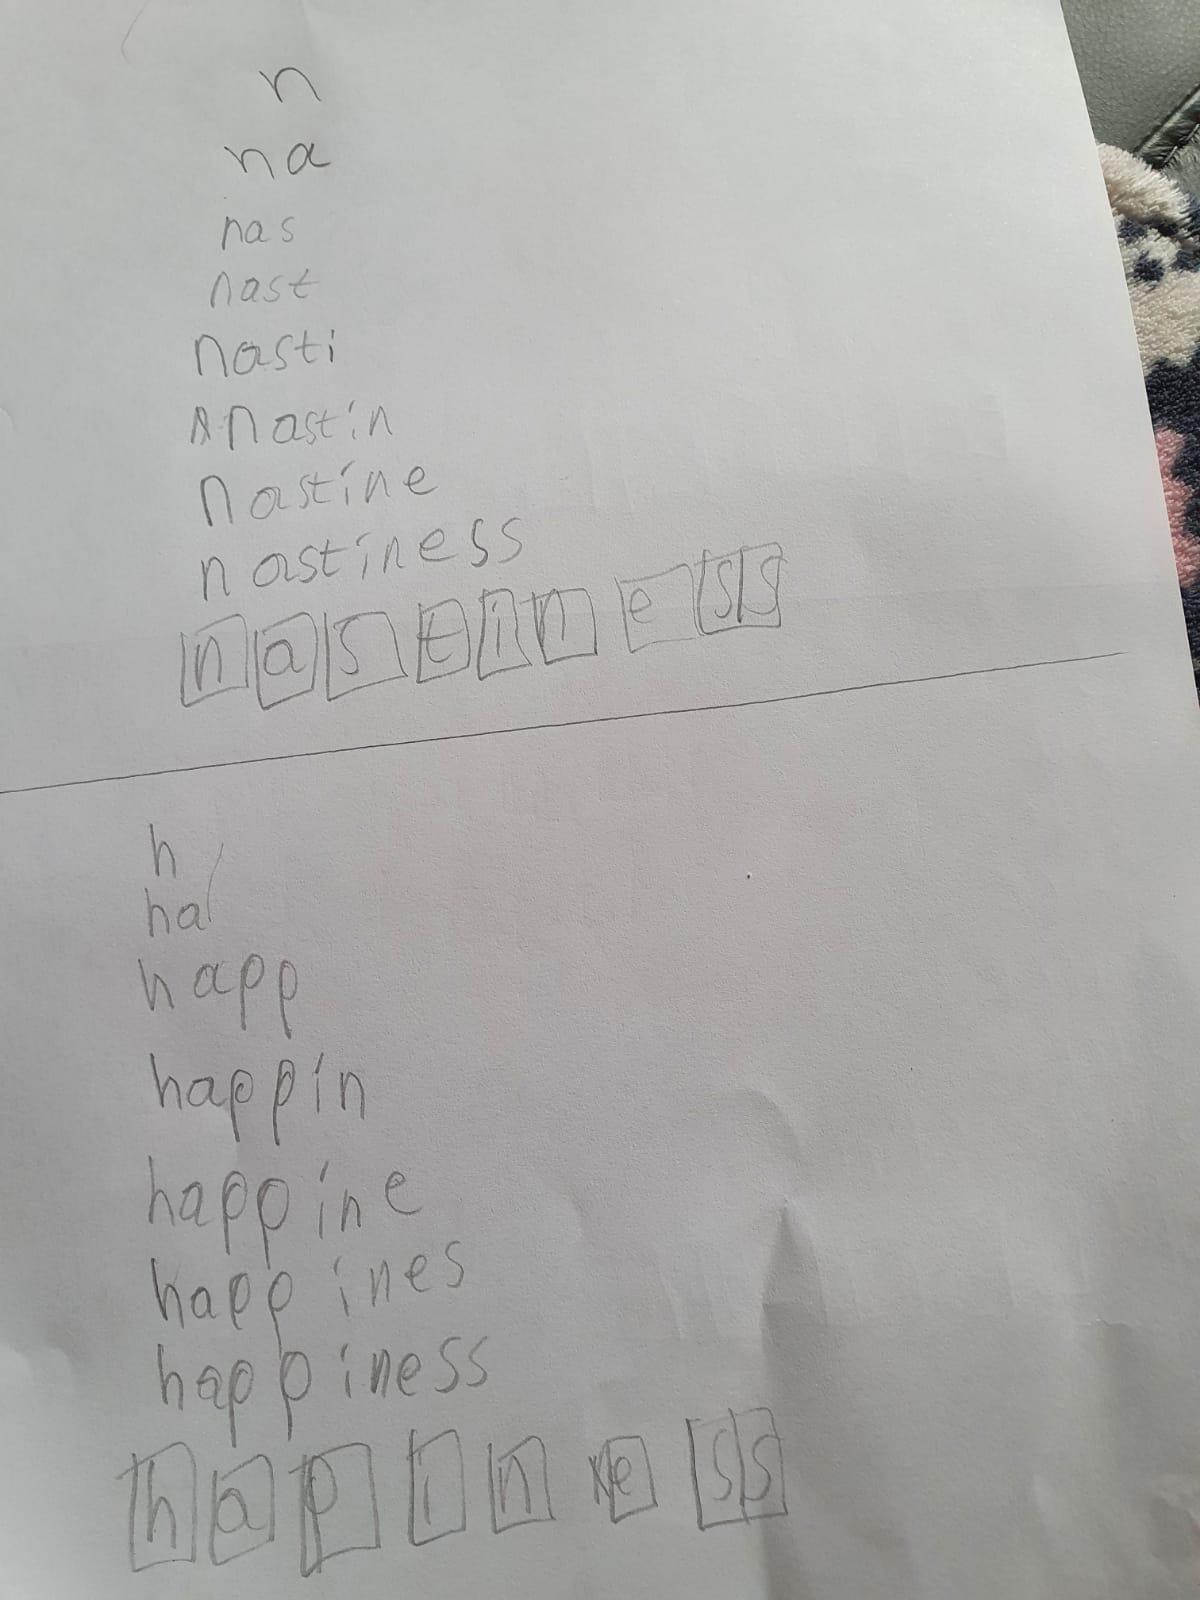 n
na
nas
nast
nasti
nastin
nastine
nastiness
nastiness
h
ha
happ
happin
happine
happines
happiness
hapiness